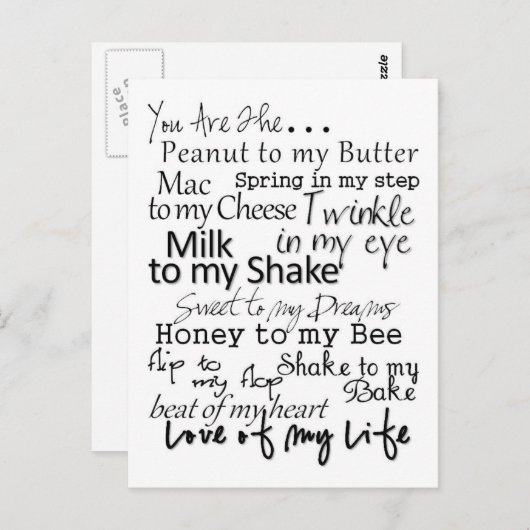 You Are The...
Peanut to my Butter
Mac
Spring in my step
to my Cheese
Twinkle
in my eye
Milk
to my Shake
Sweet to my Dreams
Honey to my Bee
flip to
my flop
Shake to my
Bake
beat of my heart
Love of My Life
Place
zzle